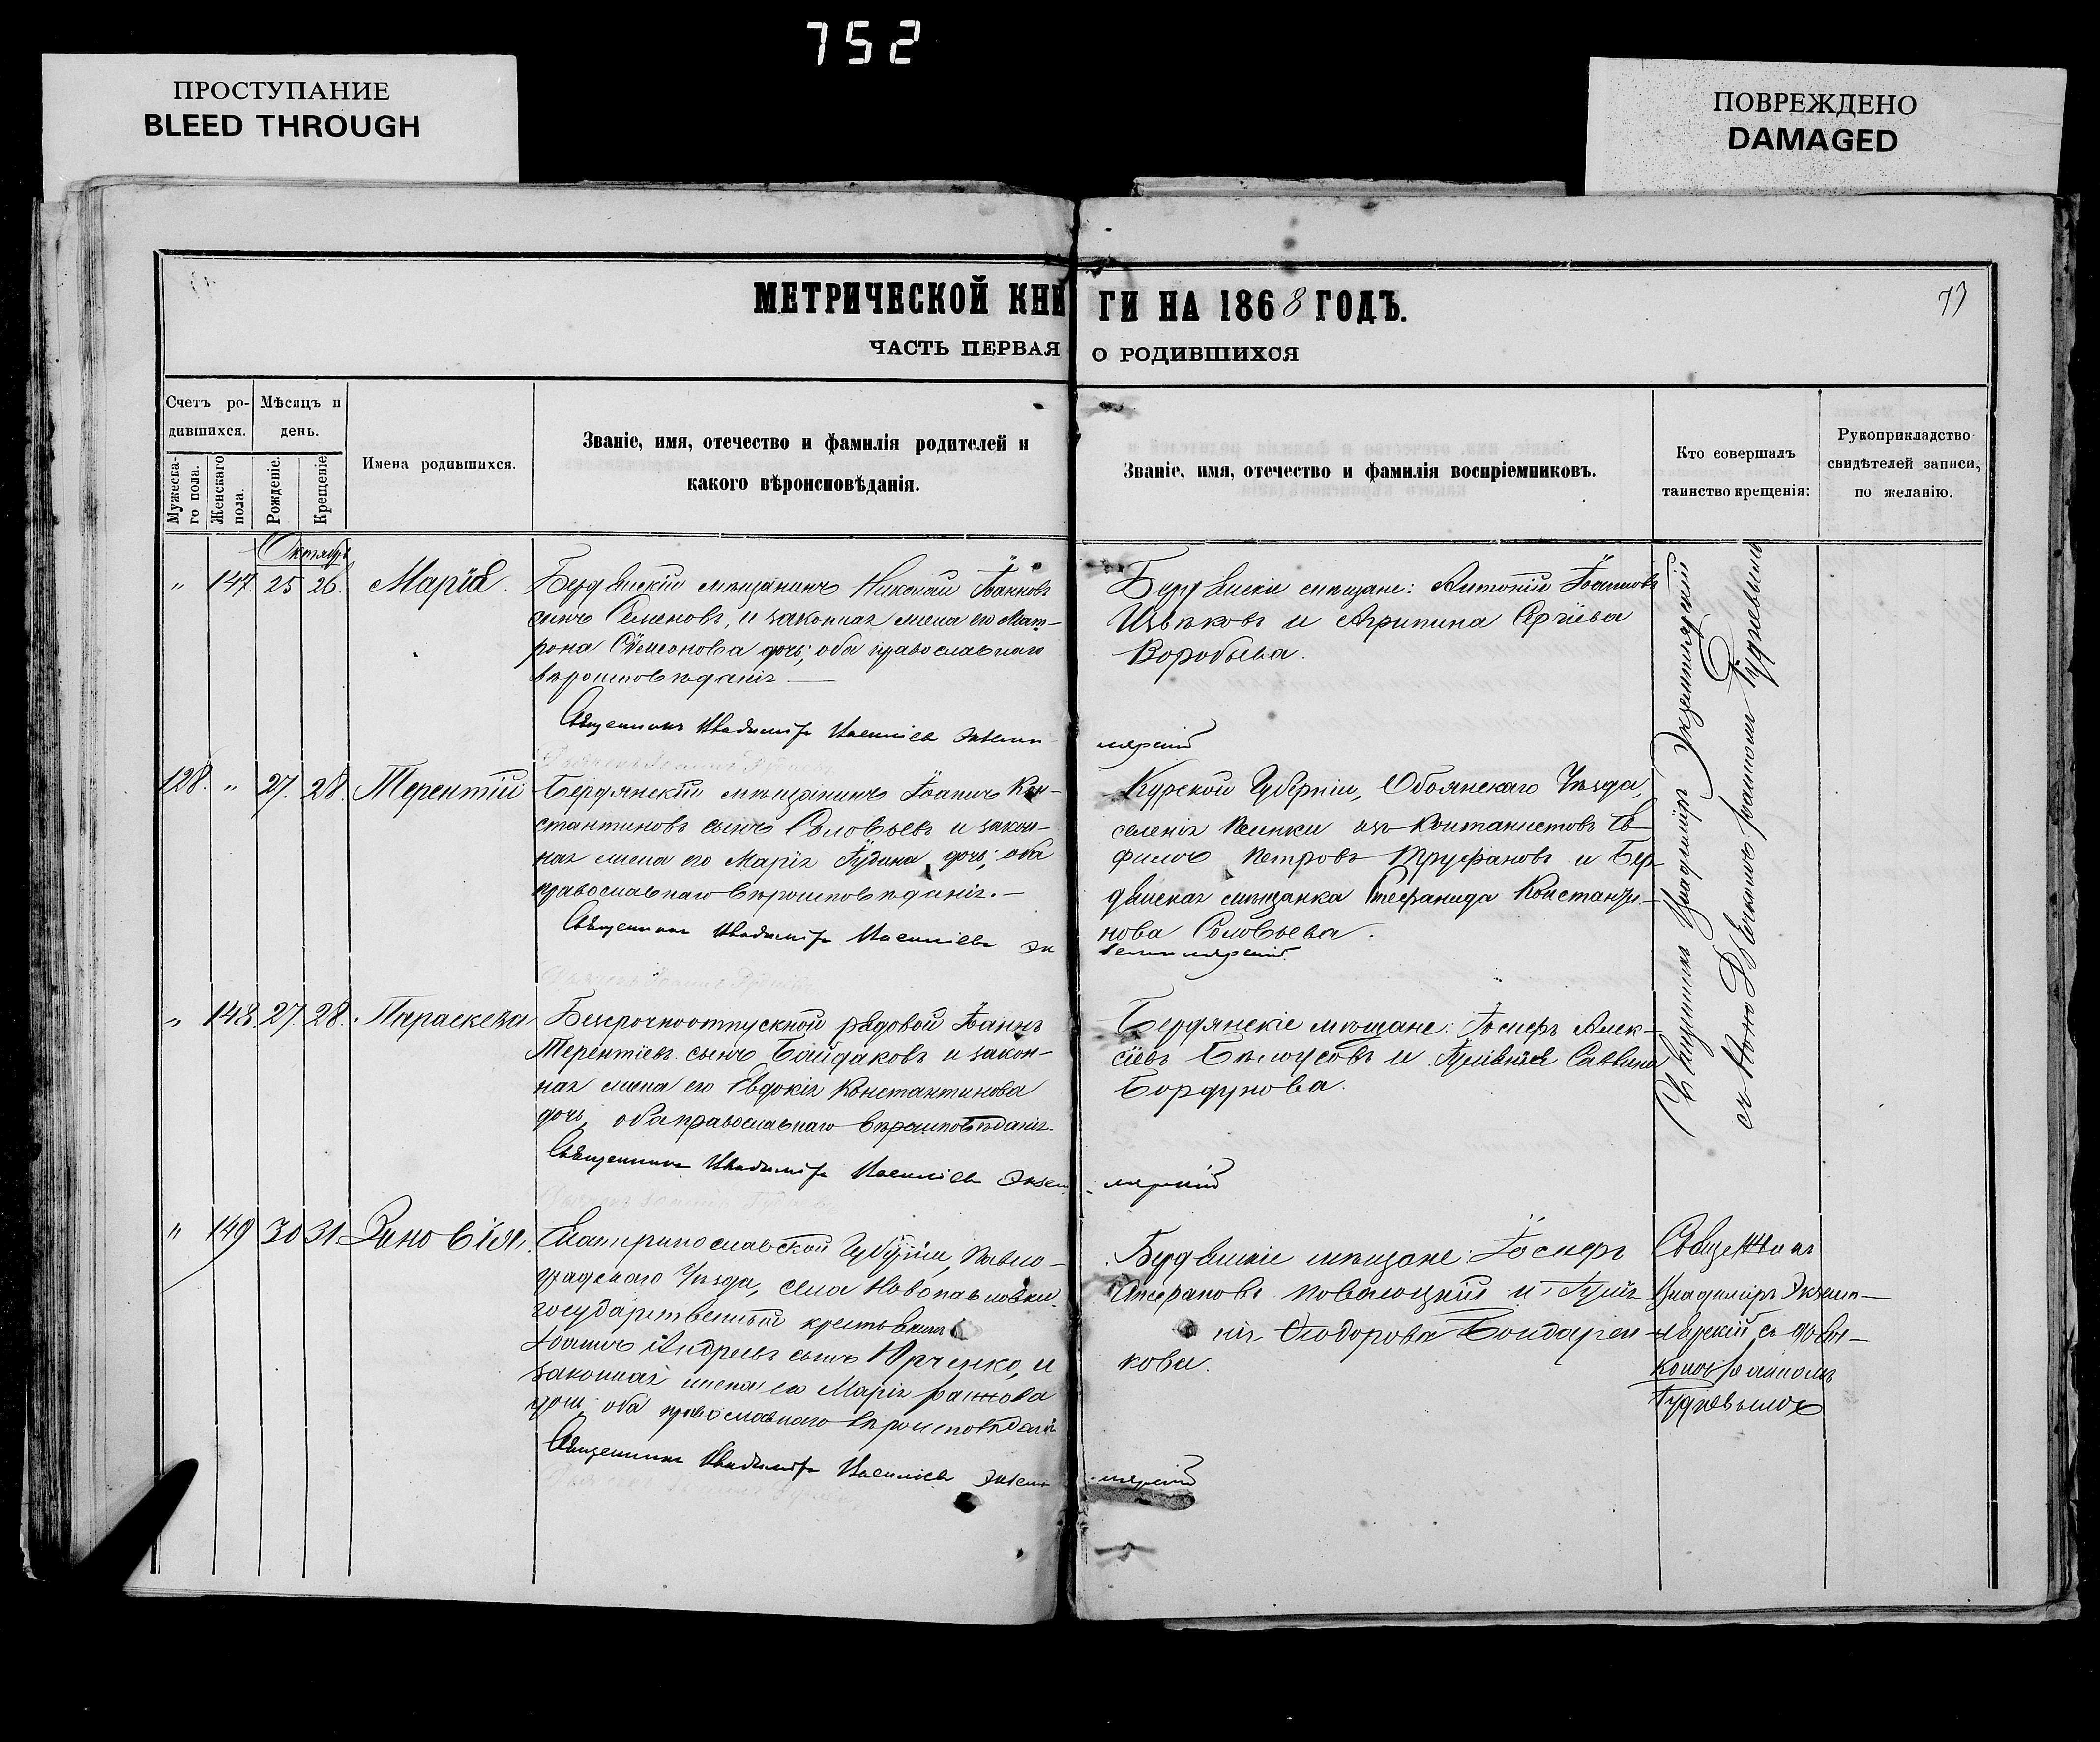 752
ПРОСТУПАНИЕ
BLEED THROUGH
ПОВРЕЖДЕНО
DAMAGED
МЕТРИЧЕСКОЙ КНИГИ НА 1868 ГОДЪ.
73
ЧАСТЬ ПЕРВАЯ О РОДИВШИХСЯ
Счетъ ро-
дившихся.
Мужеска-
го пола.
Женскаго
пола.
Мѣсяцъ и
день.
Рожденіе.
Крещеніе
Имена родившихся.
Званіе, имя, отечество и фамилія родителей и
какого вѣроисповѣданія.
Званіе, имя, отечество и фамилія воспріемниковъ.
Кто совершалъ
таинство крещенія:
Рукоприкладство
свидѣтелей записи,
по желанію.
Октябрь
" 147. 25 26. Марія.
Бердянскій мѣщанинъ Николай Іоанновъ
сынъ Семеновъ, и законная жена его Мат-
рона Сѵмеонова дочь; оба православнаго
вѣроисповѣданія
Священникъ Владиміръ Васильевъ Экземп
лярскій
Бердянскіе мѣщане: Антоній Іоанновъ
Цвѣтковъ и Агрипина Сергіева
Воробьева.
Священникъ Владиміръ Экземплярскій
съ Дьякономъ Іоанномъ Гудіевымъ
128. " 27. 28. Терентій
Бердянскій мѣщанинъ Іоаннъ Кон-
стантиновъ сынъ Соловьевъ и закон-
ная жена его Марія дочь; оба
православнаго вѣроисповѣданія.
Священникъ Владиміръ Васильевъ Эк
земплярскій
Курской Губерніи, Обоянскаго Уѣзда,
селенія Пенки изъ Ев-
фимъ Петровъ Труфановъ и Бер-
дянская мѣщанка Стефанида Константи-
нова Соловьева.
" 148 27. 28. Параскева
Безсрочноотпускной рядовой Іоаннъ
Терентіевъ сынъ Байдаковъ и закон-
ная жена его Евдокія Константинова
дочь, оба православнаго вѣроисповѣданія.
Священникъ Владиміръ Васильевъ Экземп
лярскій
Бердянскіе мѣщане: Іосифъ Алек-
сіевъ Бѣлоусовъ и Саввина
Бордунова.
" 149 30 31 Зиновія.
Екатеринославской Губерніи, Павло-
градскаго Уѣзда, села Новопавловки
государственный крестьянинъ
Іоаннъ Андреевъ сынъ Юрченко, и
законная жена его Марія
дочь; оба православнаго вѣроисповѣданія
Священникъ Владиміръ Васильевъ Экземп
лярскій
Бердянскіе мѣщане: Іосифъ
Поволоцкій и Іулія-
нія Ѳеодорова Бондарен-
кова.
Священникъ
Владиміръ Экземп-
лярскій съ дья-
кономъ Іоанномъ
Гудіевымъ